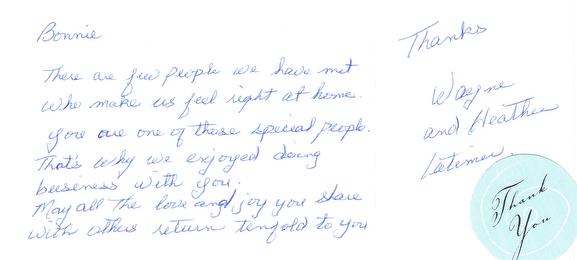 Bonnie
There are few people we have met
who make us feel right at home.
You are one of those special people.
That's why we enjoyed doing
business with you.
May all the love and joy you share
with others return tenfold to you
Thanks
Wayne
and Heather
Latimer.
Thank
You